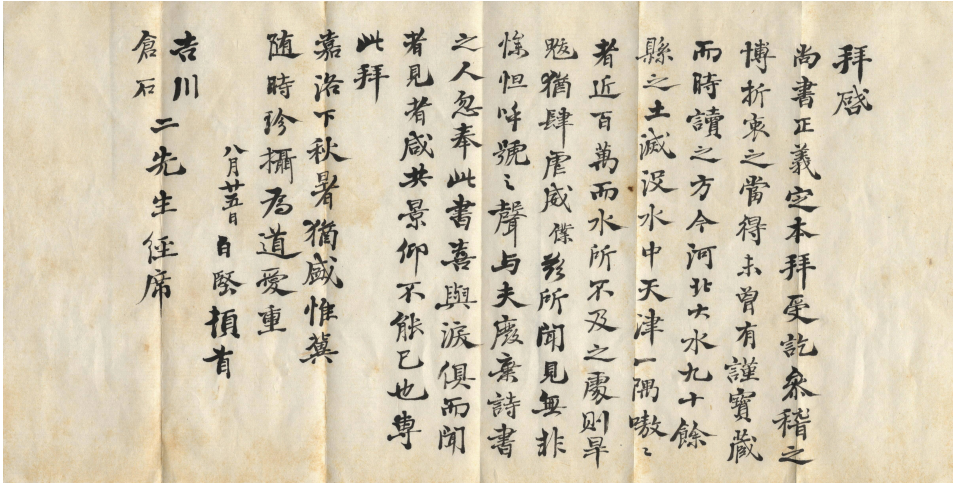 拜啓
尚書正義定本拜受訖參稽之
博折衷之當得未曾有謹寶藏
而時讀之方今河北大水九十餘
縣之土滅没水中天津一隅嗷〻
者近百萬而水所不及之處則旱
魃猶肆虐威僕所聞見無非
惨怛呼號之聲与夫廢棄詩書
之人忽奉此書喜與淚俱而聞
者見者咸共景仰不能已也専
此拜
嘉洛下秋暑猶盛惟冀
随時珍攝為道愛重
八月廿五日 白堅頓首
吉川
倉石 二先生經席